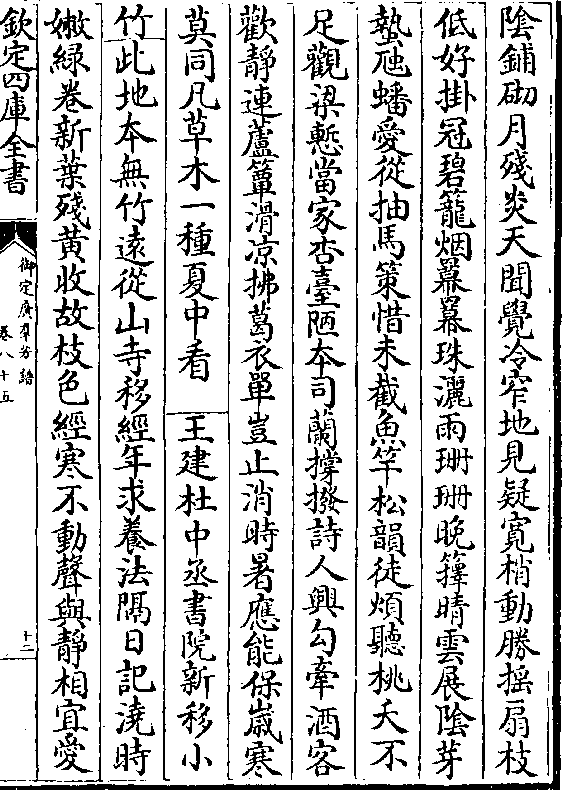 陰鋪砌月殘炎天聞覺冷窄地見疑寛梢動勝揺扇枝
低好掛冠碧籠烟羃羃珠灑雨珊珊晚籜晴雲展陰芽
蟄虺蟠愛從抽馬策惜未截魚竿松韻徒煩聽桃夭不
足觀梁慙當家杏臺陋本司蘭撐撥詩人興勾牽酒客
歡静連蘆簟滑凉拂葛衣單豈止消時暑應能保嵗寒
莫同凡草木一種夏中看 王建杜中丞書院新移小
竹此地本無竹遠從山寺移經年求養法隔日記澆時
嫩緑卷新葉殘黄收故枝色經寒不動聲與静相宜愛
欽定四庫全書
御定廣羣芳譜
卷八十五
十二